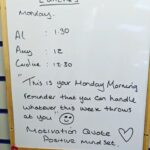 Lunches
Monday.
Al : 1.30
Amy : 12
: 12.30
"This is your Monday Morning
reminder that you can handle
whatever this week throws
at you"
Motivation Quote
Positive mindset